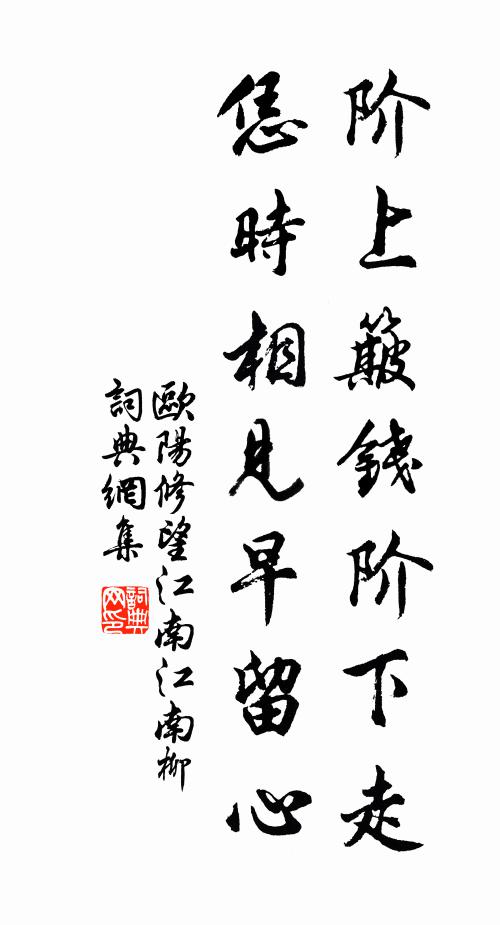 阶上簸錢阶下走
恁時相見早留心
歐陽修望江南江南柳
詞典網集
詞典网印